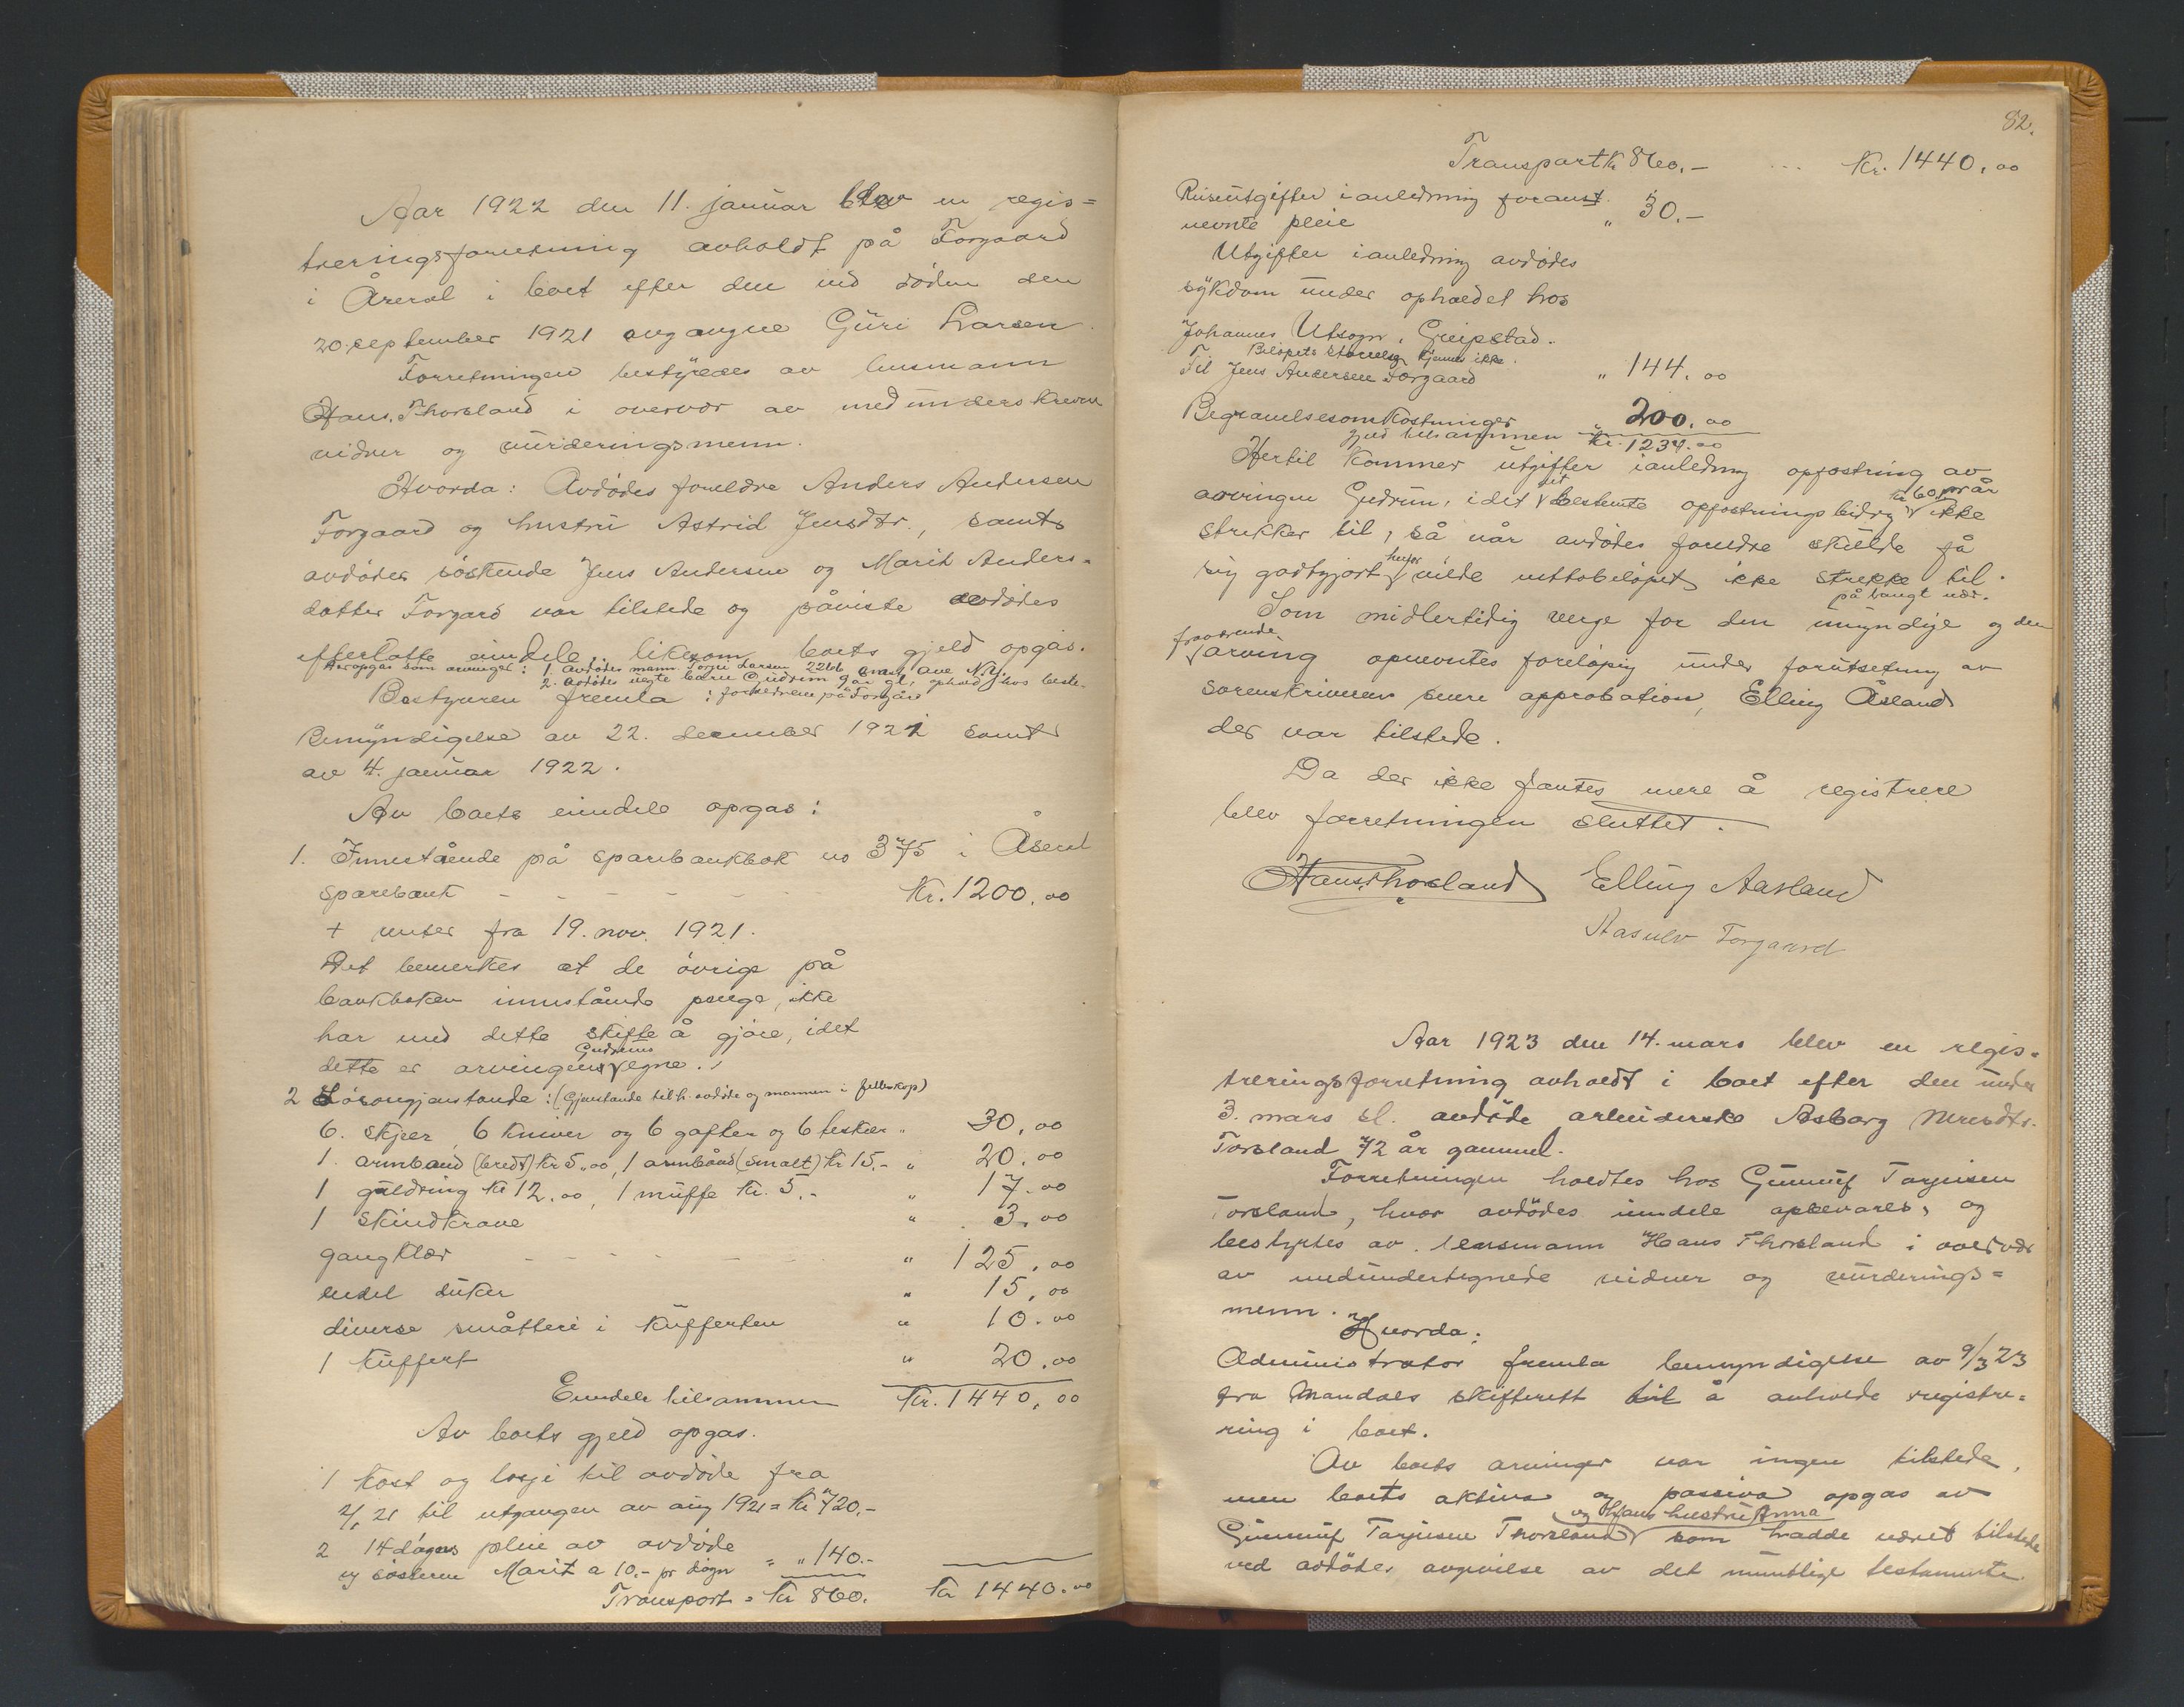 Aar 1922 den 11. januar blev en regis=
treringsforretning avholdt på Torgaard
i Åseral i boet efter den ved döden den
20. september 1921 avgangne Güri Larsen.
Forretningen bestyredes av lensmann
Hans Thorsland i overvær av medunderskrevne
vidner og vürderingsmenn.
Hvorda: Avdödes foreldre Anders Andersen
Torgaard og hustrü Astrid Jensdtr., samt
avdödes söskende Jens Andersen og Marit Anders-
datter Torgard var tilstede og påviste avdödes
efterlatte eiendele, likesom boets gjeld opgas.
Her opgas som arvinger: 1. Avdödes mann Torgei Larsen 2266 ave N.Y.
2. avdödes egte barn Güdrün 9 år gl., ophold hos beste-
Bestyreren fremla : foreldrene på Torgård
Bemyndigelse av 22. desember 1921 samt
av 4. januar 1922.
Av boets eiendele opgas:
1. Innestående på sparebankbok no 375 i Åseral
sparebank - - - - - Kr. 1200,00
+ renter fra 19. nov. 1921.
Det bemerkes at de övrige på
bankboken innestående penge, ikke
har med dette skifte å gjöre, idet
Gudruns
dette er arvingens egne.
2 Lösöregjenstande: (Gjenstande tilh. avdöde og mannen i felleskap)
6. skjeer, 6 kniver og 6 gafler og 6 teskeer " 30,00
1. armbaand (bredt) kr 5,00, 1 armbånd (smalt) kr 15.- " 20.00
1 güldring kr 12.00, 1 müffe kr. 5.- " 17.00
1 skindkrave " 3,00
gangklær - - - - " 125,00
endel düker " 15,00
diverse småtteri i küfferten " 10.00
1 küffert " 20,00
Eiendele tilsammen Kr. 1440,00
Av boets gjeld opgas.
1 kost og losji til avdöde fra
til utgangen av aug 1921 = kr 720,-
2 14 dagers pleie av avdöde
av sösteren Marit a 10.- pr dögn = " 140.-
Transport = Kr 860. Kr 1440.00
82.
Transport kr 860.- ... Kr. 1440,00
Reiseutgifter i anledning foranst.
nevnte pleie " 30.-
Utgifter i anledning avdödes
sykdom under opholdet hos
Johannes Utsogn, Greipstad.
Belöpets störrelse kjennes ikke.
Til Jens Andersen Torgaard " 144.00
Begravelsesomkostninger " 200.00
gjeld tilsammen Kr. 1234.00
Hertil kommer utgifter i anledning opfostring av
det kr 60 pr år
arvingen Gudrün, idet bestemte opfostringsbidrag ikke
strekker til, så når avdödes foreldre skülde få
herfor
sig godtgjort vilde nettobelöpet ikke strekke til.
på langt nær.
Som midlertidig verge for den ümyndige og den
fraværende
arving opnevntes foreløpig ünder forütsetning av
sorenskriveren senere approbation, Elling Åsland
der var tilstede.
Da der ikke fantes mere å registrere
blev forretningen sluttet.
Hans Thorsland Elling Aasland
Aasulv Torgaard
Aar 1923 den 14. mars blev en regis=
treringsforretning avholdt i boet efter den under
3. mars sl. avdöde arbeiderske Asborg
Torsland 72 år gammel.
Forretningen holdtes hos Gunnuf Torjusen
Torsland, hvor avdödes eiendele opbevares, og
bestyrtes av lensmann Hans Thorsland i overvær
av medundertegnede vidner og vürderings=
menn.
Hvorda:
Administrator fremla bemyndigelse av 9/3 23
fra Mandals skifterett til å avholde registre=
ring i boet.
Av boets arvinger var ingen tilstede,
men boets aktiva og passiva opgas av
og hans hustrü Anna
Gunnuf Torjusen Thorsland som hadde været tilstede
ved avdödes avgivelse av det muntlige testamente